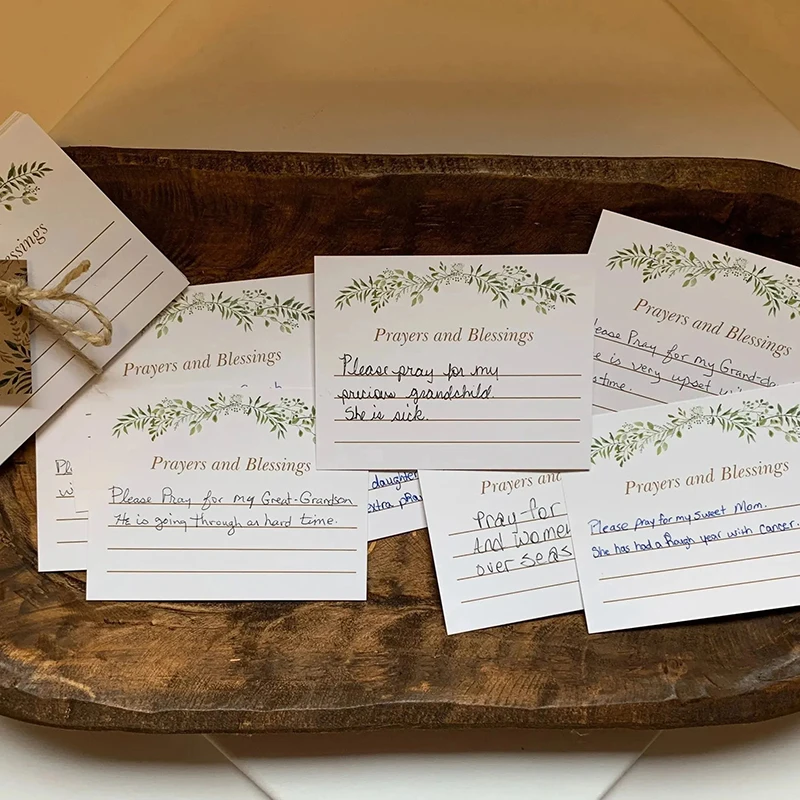 essings
Prayers and Blessings
Please pray for my
precious grandchild.
She is sick.
Prayers and Blessings
Please Pray for my Grand-da
e is very upset
time.
Prayers and Blessings
daughter
xtra
Prayers and Blessings
Please Pray for my Great-Grandson
He is going through as hard time.
Prayers an
Pray for
And Women
over seas
Prayers and Blessings
Please pray for my sweet Mom.
She has had a Rough year with Cancer.